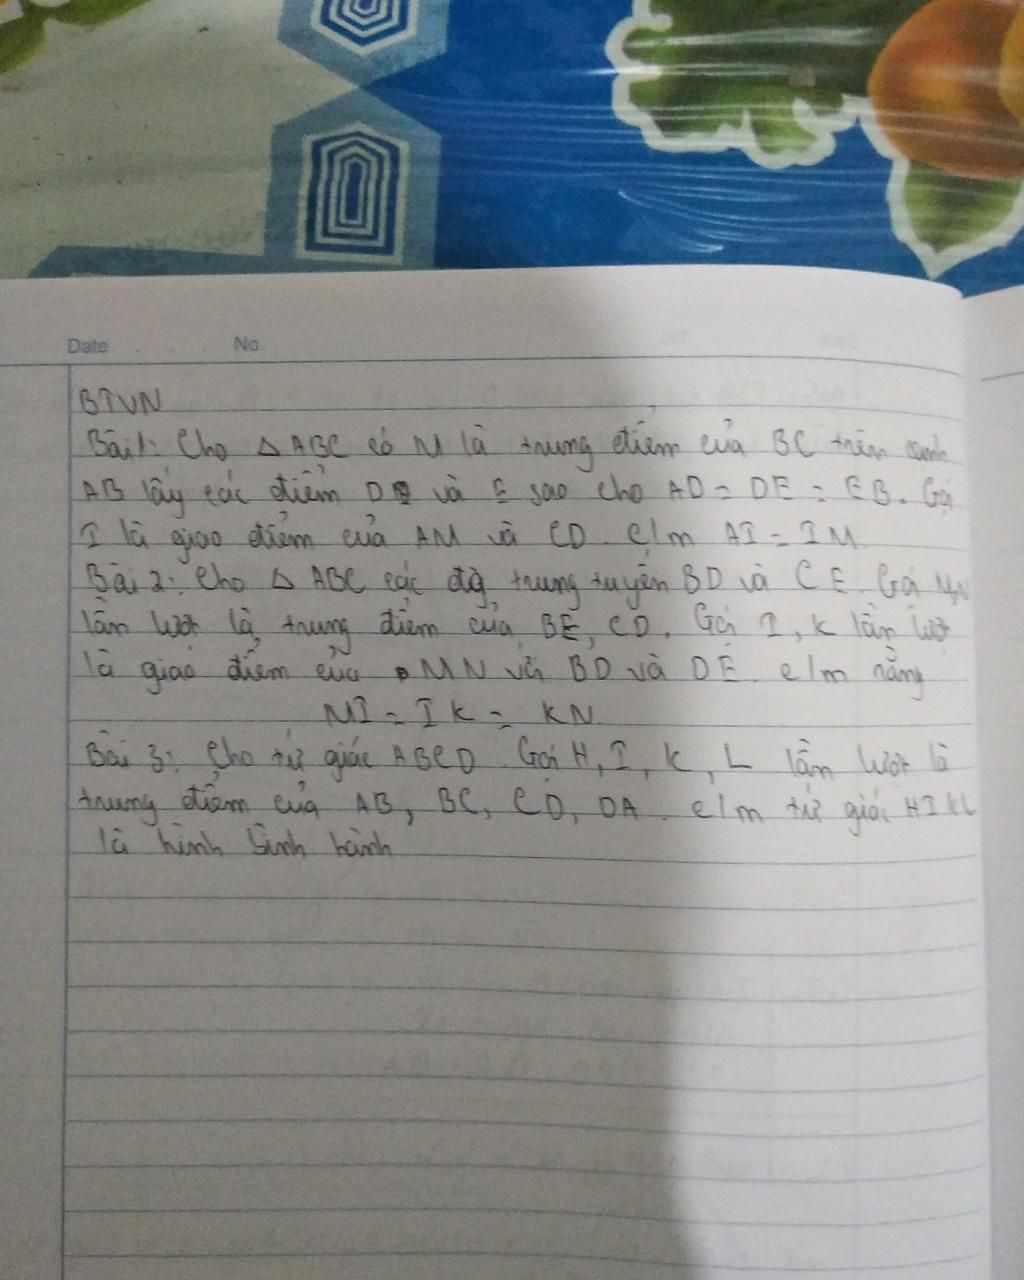 Date No.
BTVN
Bài 1: Cho △ ABC có M là trung điểm của BC trên cạnh
AB lấy các điểm D và E sao cho AD = DE = EB. Gọi
I là giao điểm của AM và CD. c/m AI = IM
Bài 2: Cho △ ABC các đg trung tuyến BD và CE. Gọi M, N
lần lượt là trung điểm của BE, CD. Gọi I, K lần lượt
là giao điểm của MN với BD và DE. c/m rằng
MI = IK = KN
Bài 3: Cho tứ giác ABCD. Gọi H, I, K, L lần lượt là
trung điểm của AB, BC, CD, DA. c/m tứ giác HIKL
là hình bình hành